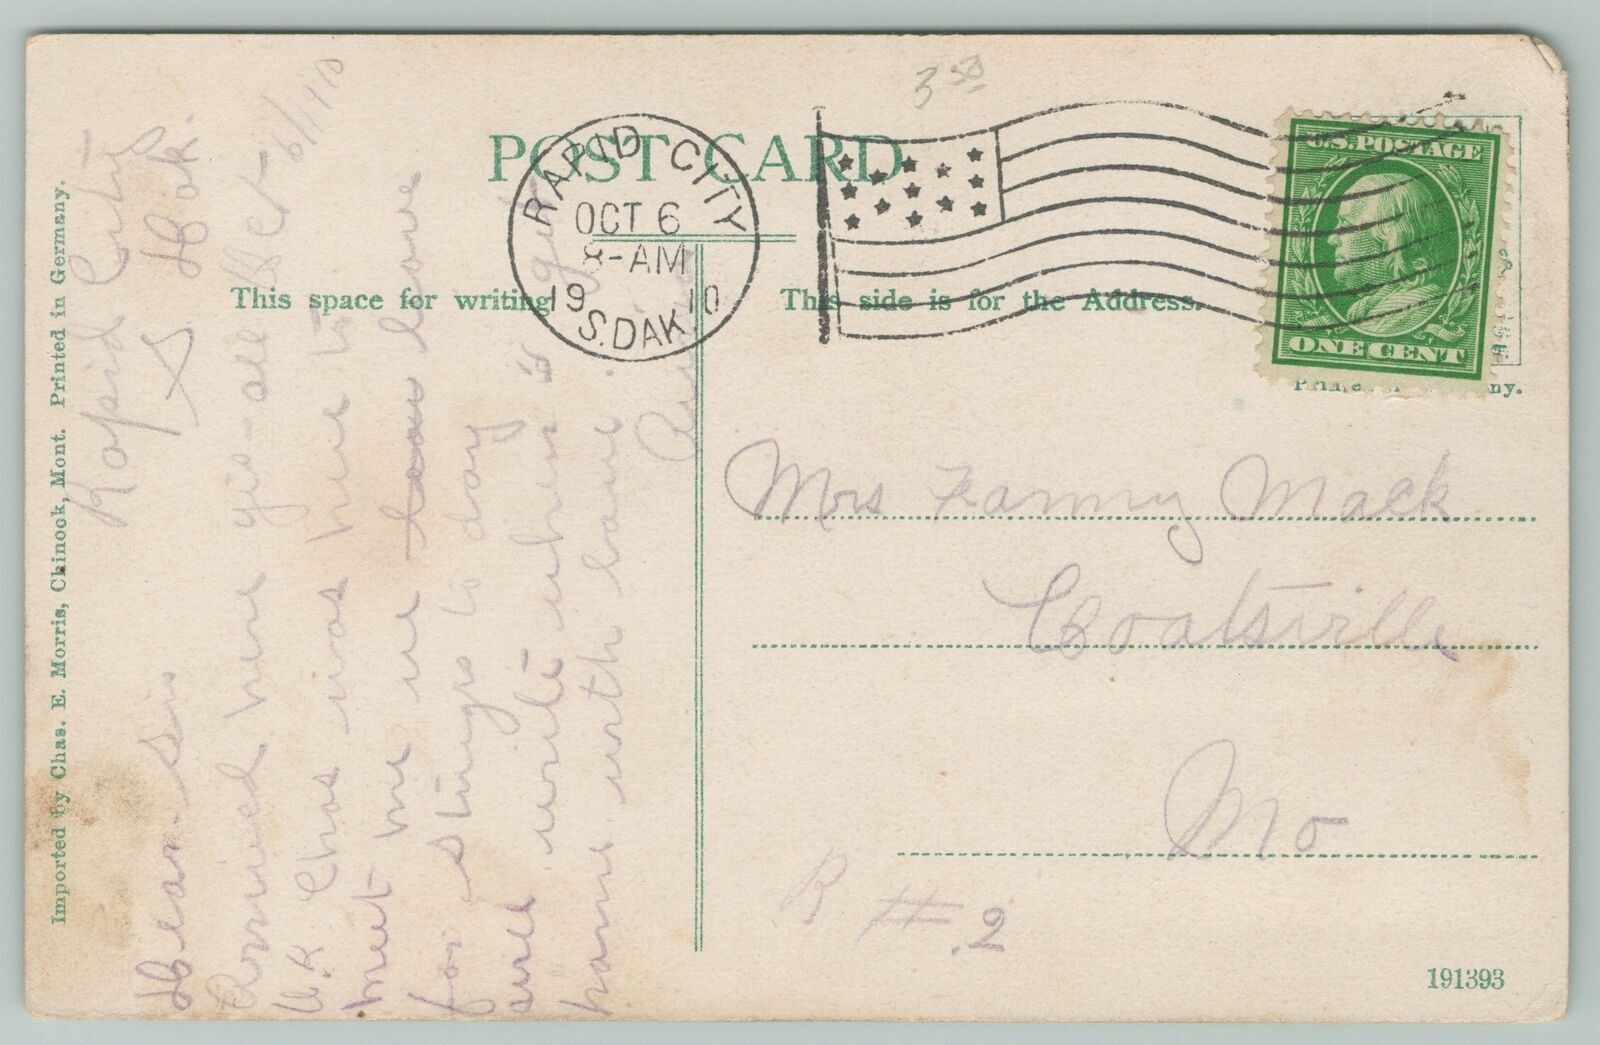 POST CARD
This space for writing
This side is for the Address.
Imported by Chas. E. Morris, Chinook, Mont. Printed in Germany.
RAPID CITY
OCT 6
8-AM
1910
S. DAK.
U.S. POSTAGE
ONE CENT
3 50
Rapid City
S Dak.
6/1910
Dear Sis
Arrived here yes- all
O.K. Chas was here to
meet me we leave
for Sturgis to day
will write when I get
home with love.
Mrs Fanny Mack
Coatsville
Mo
R # 2
191393